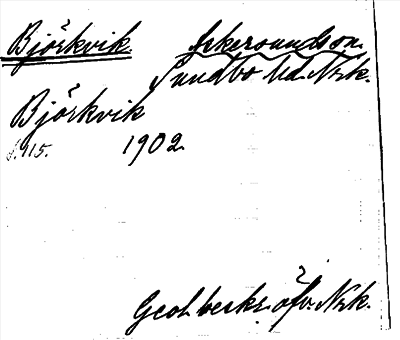 Björkvik Askersunds sn.
Sundbo hd. Nrk.
Björkvik
s. 115. 1902
Geol. beskr. öfv. Nrk.